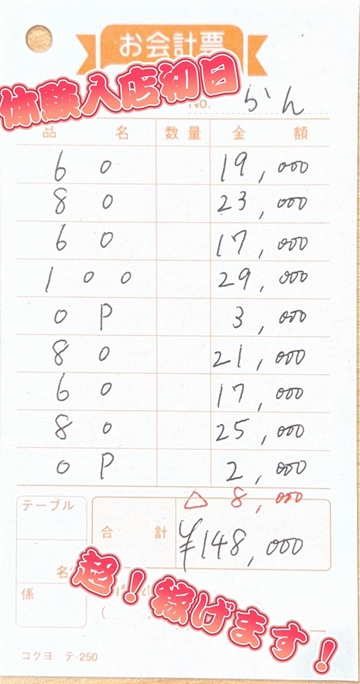 お会計票
体験入店初日
No. らん
品 名 数量 金 額
60 19,000
80 23,000
60 17,000
100 29,000
OP 3,000
80 21,000
60 17,000
80 25,000
OP 2,000
△ 8,000
テーブル
合 計 ¥148,000
名
係
超!稼げます!
コクヨ テ-250